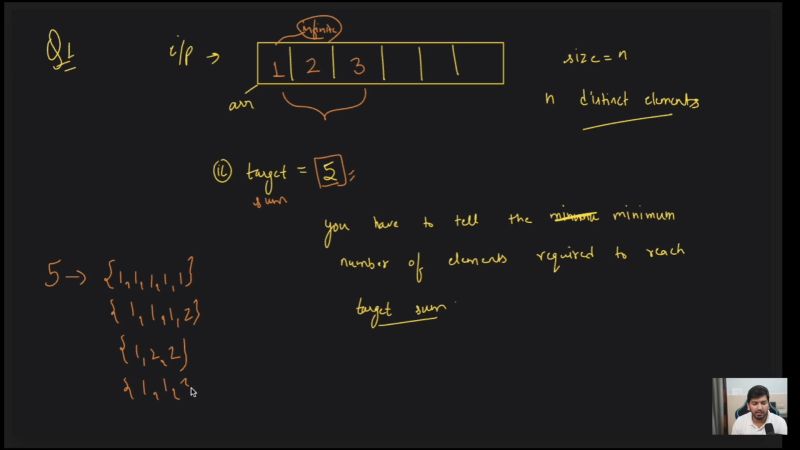 infinite
Q1 i/p → 1 2 3 size = n
arr n distinct elements
(ii) target = 5
sum
you have to tell the minimum
number of elements required to reach
target sum
5 → {1,1,1,1,1}
{1,1,1,2}
{1,2,2}
{1,1,